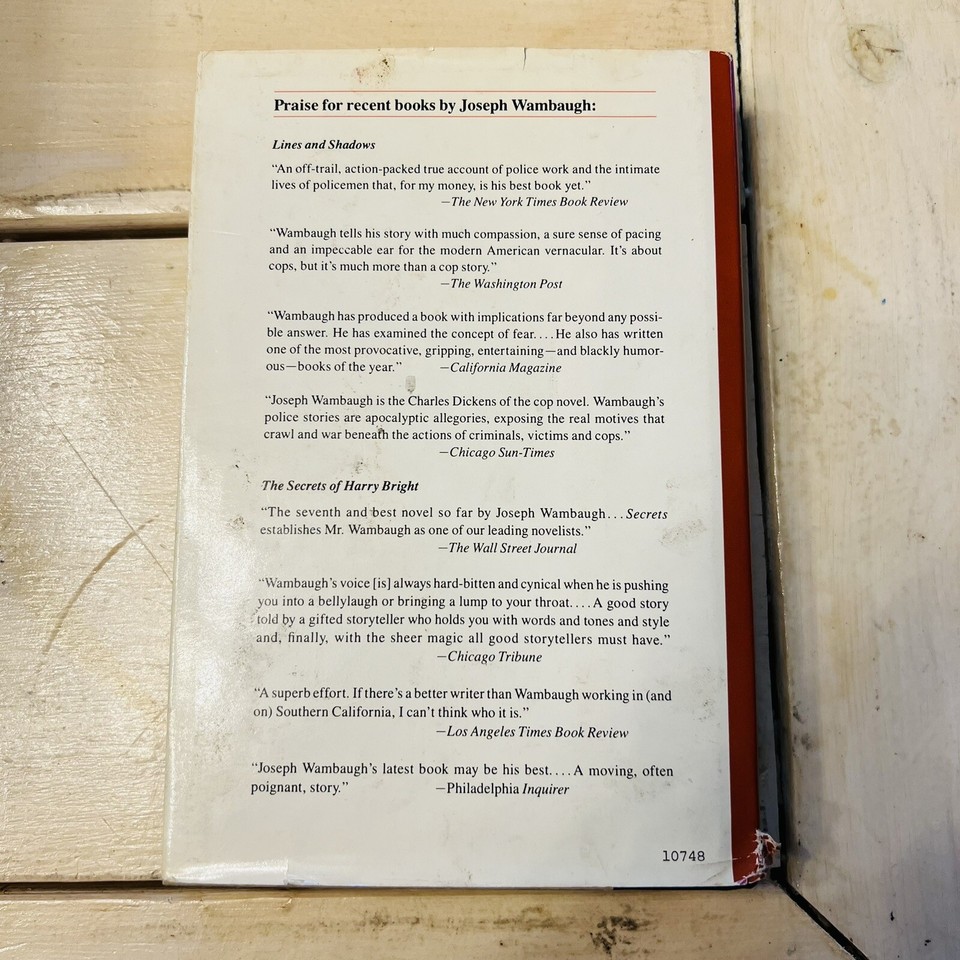 Praise for recent books by Joseph Wambaugh:
Lines and Shadows
“An off-trail, action-packed true account of police work and the intimate
lives of policemen that, for my money, is his best book yet.”
—The New York Times Book Review
“Wambaugh tells his story with much compassion, a sure sense of pacing
and an impeccable ear for the modern American vernacular. It’s about
cops, but it’s much more than a cop story.”
—The Washington Post
“Wambaugh has produced a book with implications far beyond any possi-
ble answer. He has examined the concept of fear. . . . He also has written
one of the most provocative, gripping, entertaining—and blackly humor-
ous—books of the year.” —California Magazine
“Joseph Wambaugh is the Charles Dickens of the cop novel. Wambaugh’s
police stories are apocalyptic allegories, exposing the real motives that
crawl and war beneath the actions of criminals, victims and cops.”
—Chicago Sun-Times
The Secrets of Harry Bright
“The seventh and best novel so far by Joseph Wambaugh . . . Secrets
establishes Mr. Wambaugh as one of our leading novelists.”
—The Wall Street Journal
“Wambaugh’s voice [is] always hard-bitten and cynical when he is pushing
you into a bellylaugh or bringing a lump to your throat. . . . A good story
told by a gifted storyteller who holds you with words and tones and style
and, finally, with the sheer magic all good storytellers must have.”
—Chicago Tribune
“A superb effort. If there’s a better writer than Wambaugh working in (and
on) Southern California, I can’t think who it is.”
—Los Angeles Times Book Review
“Joseph Wambaugh’s latest book may be his best. . . . A moving, often
poignant, story.” —Philadelphia Inquirer
10748